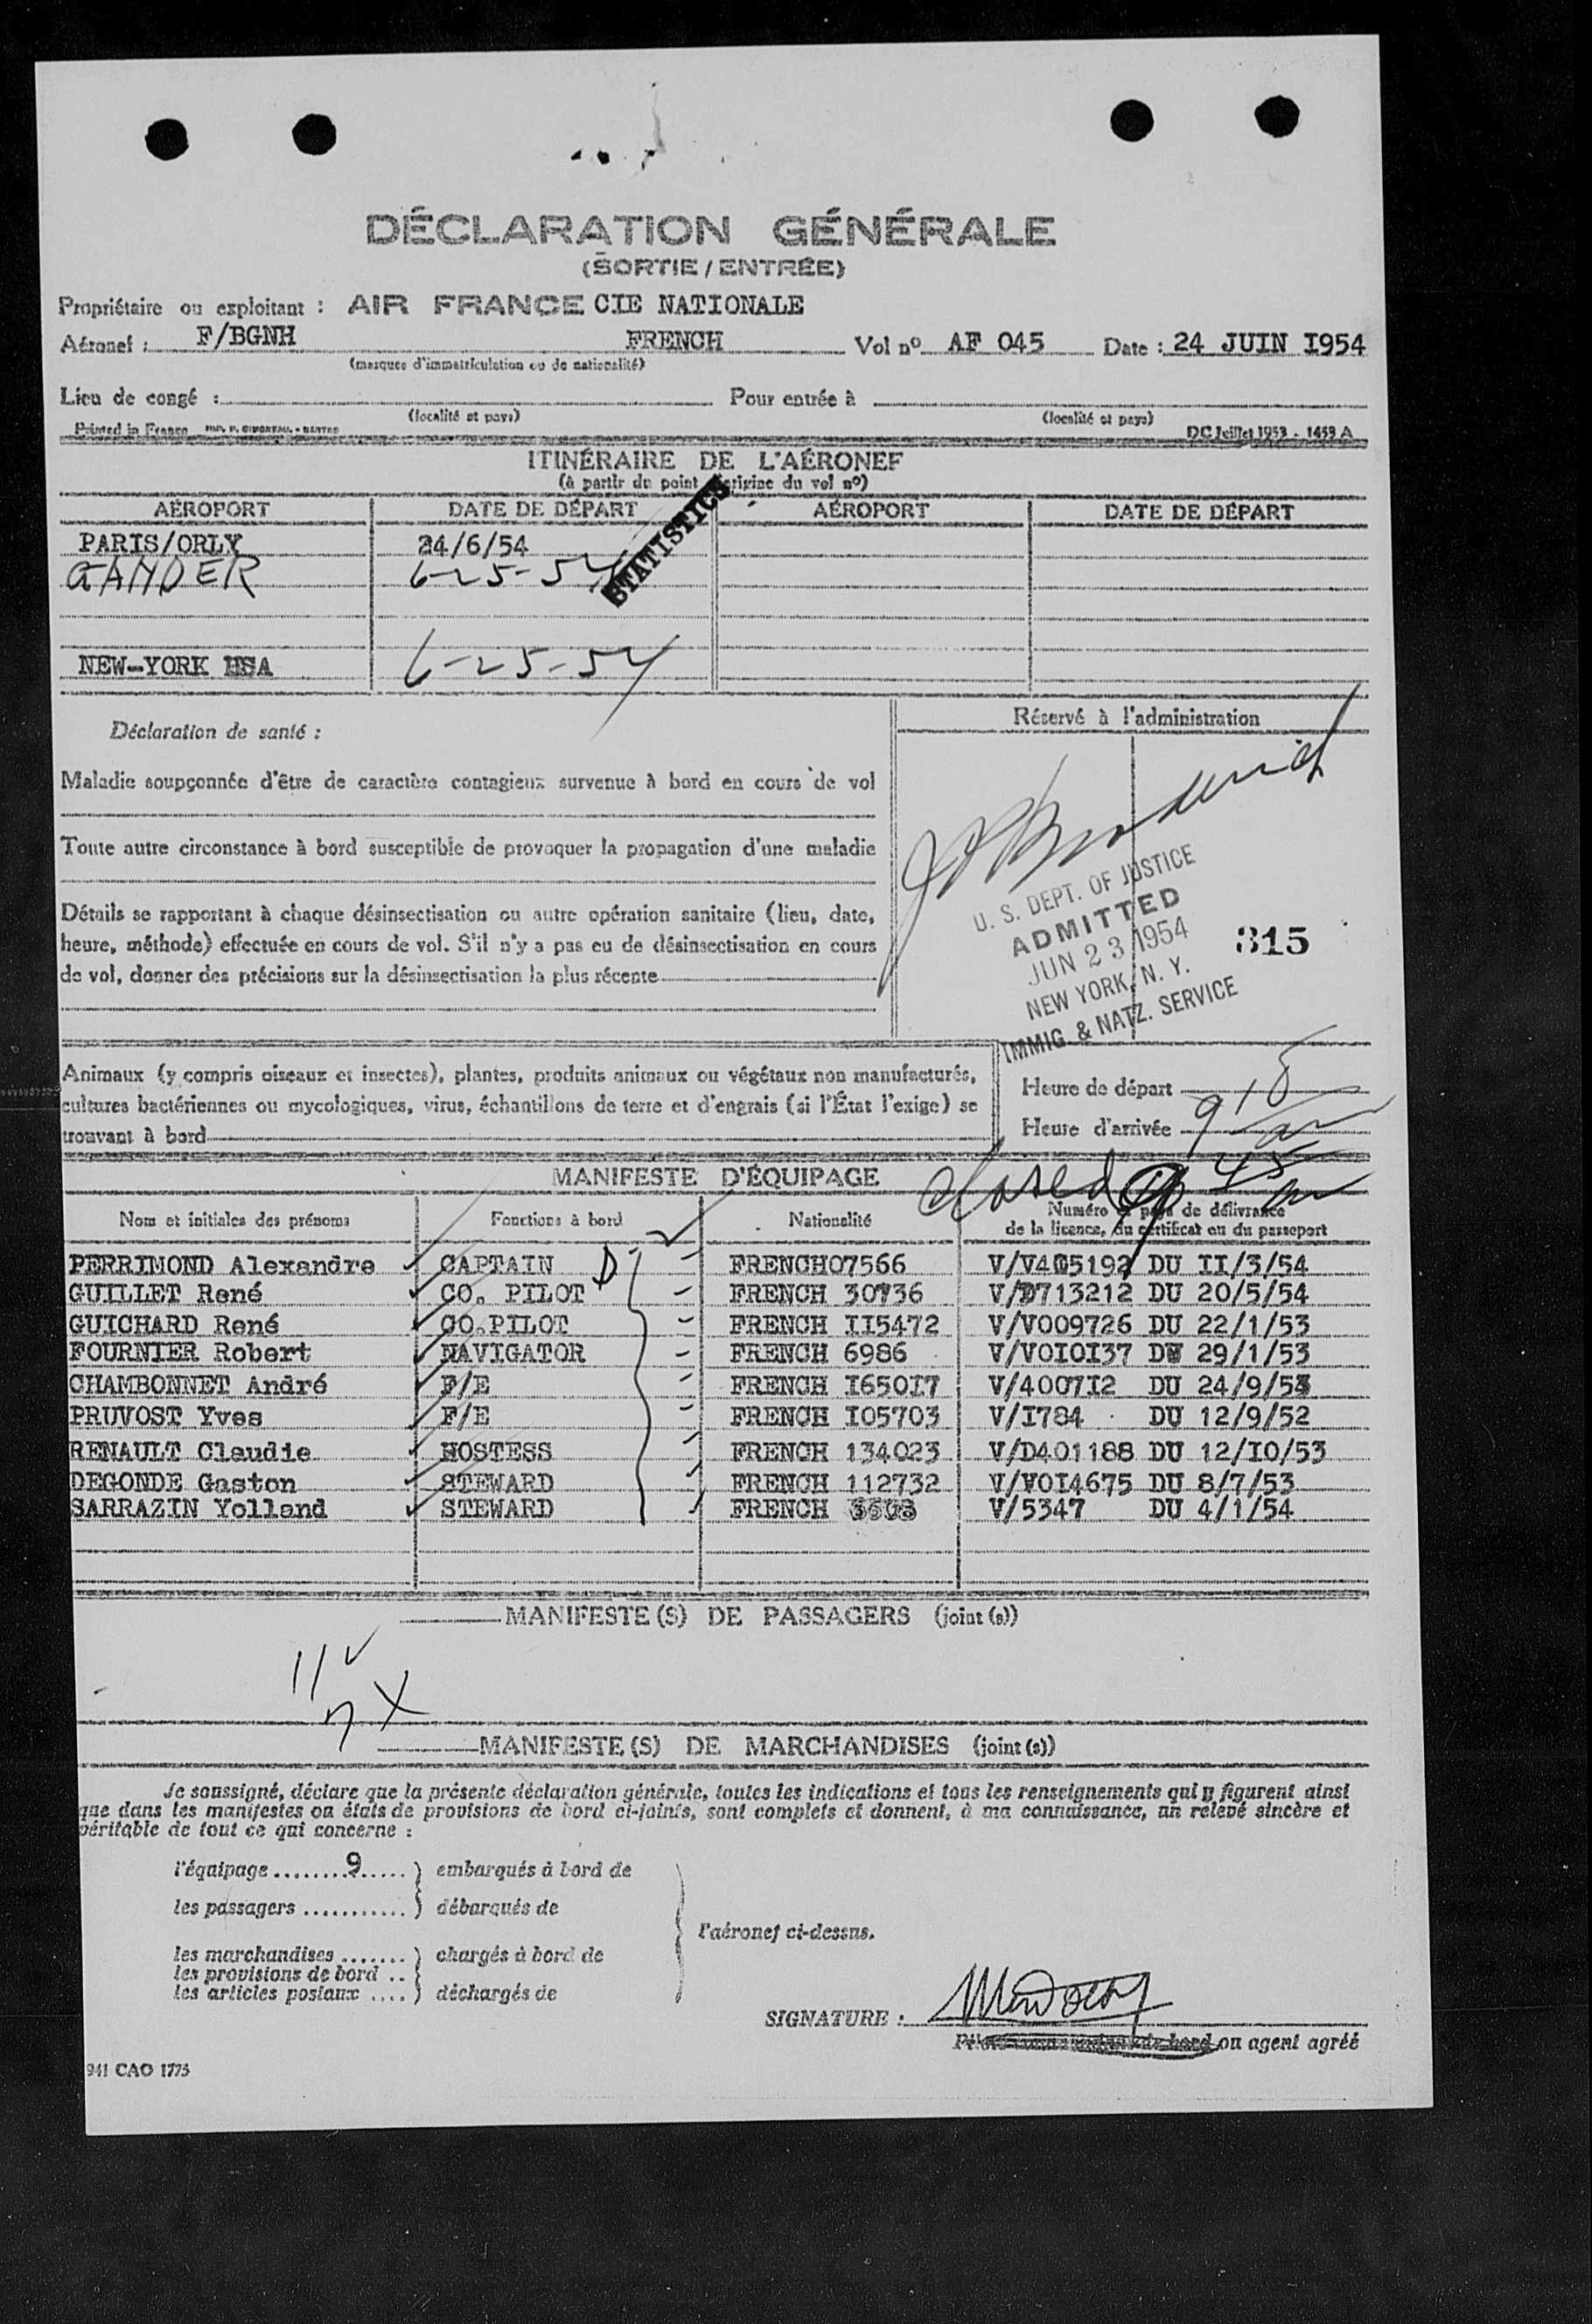 DÉCLARATION GÉNÉRALE
(SORTIE / ENTRÉE)
Propriétaire ou exploitant : AIR FRANCE CIE NATIONALE
Aéronef : F/BGNH FRENCH Vol nº AF 045 Date : 24 JUIN I954
(marques d'immatriculation ou de nationalité)
Lieu de congé : Pour entrée à
(localité et pays) (localité et pays)
Printed in France DC Juillet 1953 - 1453 A
ITINÉRAIRE DE L'AÉRONEF
(à partir du point d'origine du vol nº)
STATISTICS
AÉROPORT DATE DE DÉPART AÉROPORT DATE DE DÉPART
PARIS/ORLY 24/6/54
GANDER 6-25-54
NEW-YORK USA 6-25-54
Déclaration de santé :
Réservé à l'administration
Maladie soupçonnée d'être de caractère contagieux survenue à bord en cours de vol
Toute autre circonstance à bord susceptible de provoquer la propagation d'une maladie
Détails se rapportant à chaque désinsectisation ou autre opération sanitaire (lieu, date,
heure, méthode) effectuée en cours de vol. S'il n'y a pas eu de désinsectisation en cours
de vol, donner des précisions sur la désinsectisation la plus récente
U. S. DEPT. OF JUSTICE
ADMITTED
JUN 23 1954
NEW YORK, N. Y.
IMMIG. & NATZ. SERVICE
315
Animaux (y compris oiseaux et insectes), plantes, produits animaux ou végétaux non manufacturés,
cultures bactériennes ou mycologiques, virus, échantillons de terre et d'engrais (si l'État l'exige) se
trouvant à bord
Heure de départ
Heure d'arrivée 918
MANIFESTE D'ÉQUIPAGE
Closed 9 45
Nom et initiales des prénoms Fonctions à bord Nationalité Numéro et pays de délivrance
de la licence, du certificat ou du passeport
PERRIMOND Alexandre CAPTAIN D FRENCH07566 V/V405192 DU II/3/54
GUILLET René CO. PILOT FRENCH 30736 V/D713212 DU 20/5/54
GUICHARD René CO.PILOT FRENCH II5472 V/V009726 DU 22/1/53
FOURNIER Robert NAVIGATOR FRENCH 6986 V/VOIOI37 DU 29/1/53
CHAMBONNET André F/E FRENCH I65OI7 V/4007I2 DU 24/9/53
PRUVOST Yves F/E FRENCH IO5703 V/I784 DU 12/9/52
RENAULT Claudie HOSTESS FRENCH 134023 V/D401188 DU 12/IO/53
DEGONDE Gaston STEWARD FRENCH 112732 V/VOI4675 DU 8/7/53
SARRAZIN Yolland STEWARD FRENCH V/5347 DU 4/1/54
MANIFESTE(S) DE PASSAGERS (joint(s))
11
MANIFESTE(S) DE MARCHANDISES (joint(s))
Je soussigné, déclare que la présente déclaration générale, toutes les indications et tous les renseignements qui y figurent ainsi
que dans les manifestes ou états de provisions de bord ci-joints, sont complets et donnent, à ma connaissance, un relevé sincère et
véritable de tout ce qui concerne :
l'équipage ........9..... ) embarqués à bord de
les passagers ........... ) débarqués de
l'aéronef ci-dessus.
les marchandises ....... ) chargés à bord de
les provisions de bord ..
les articles postaux .... ) déchargés de
SIGNATURE :
ou agent agréé
941 CAO 1775